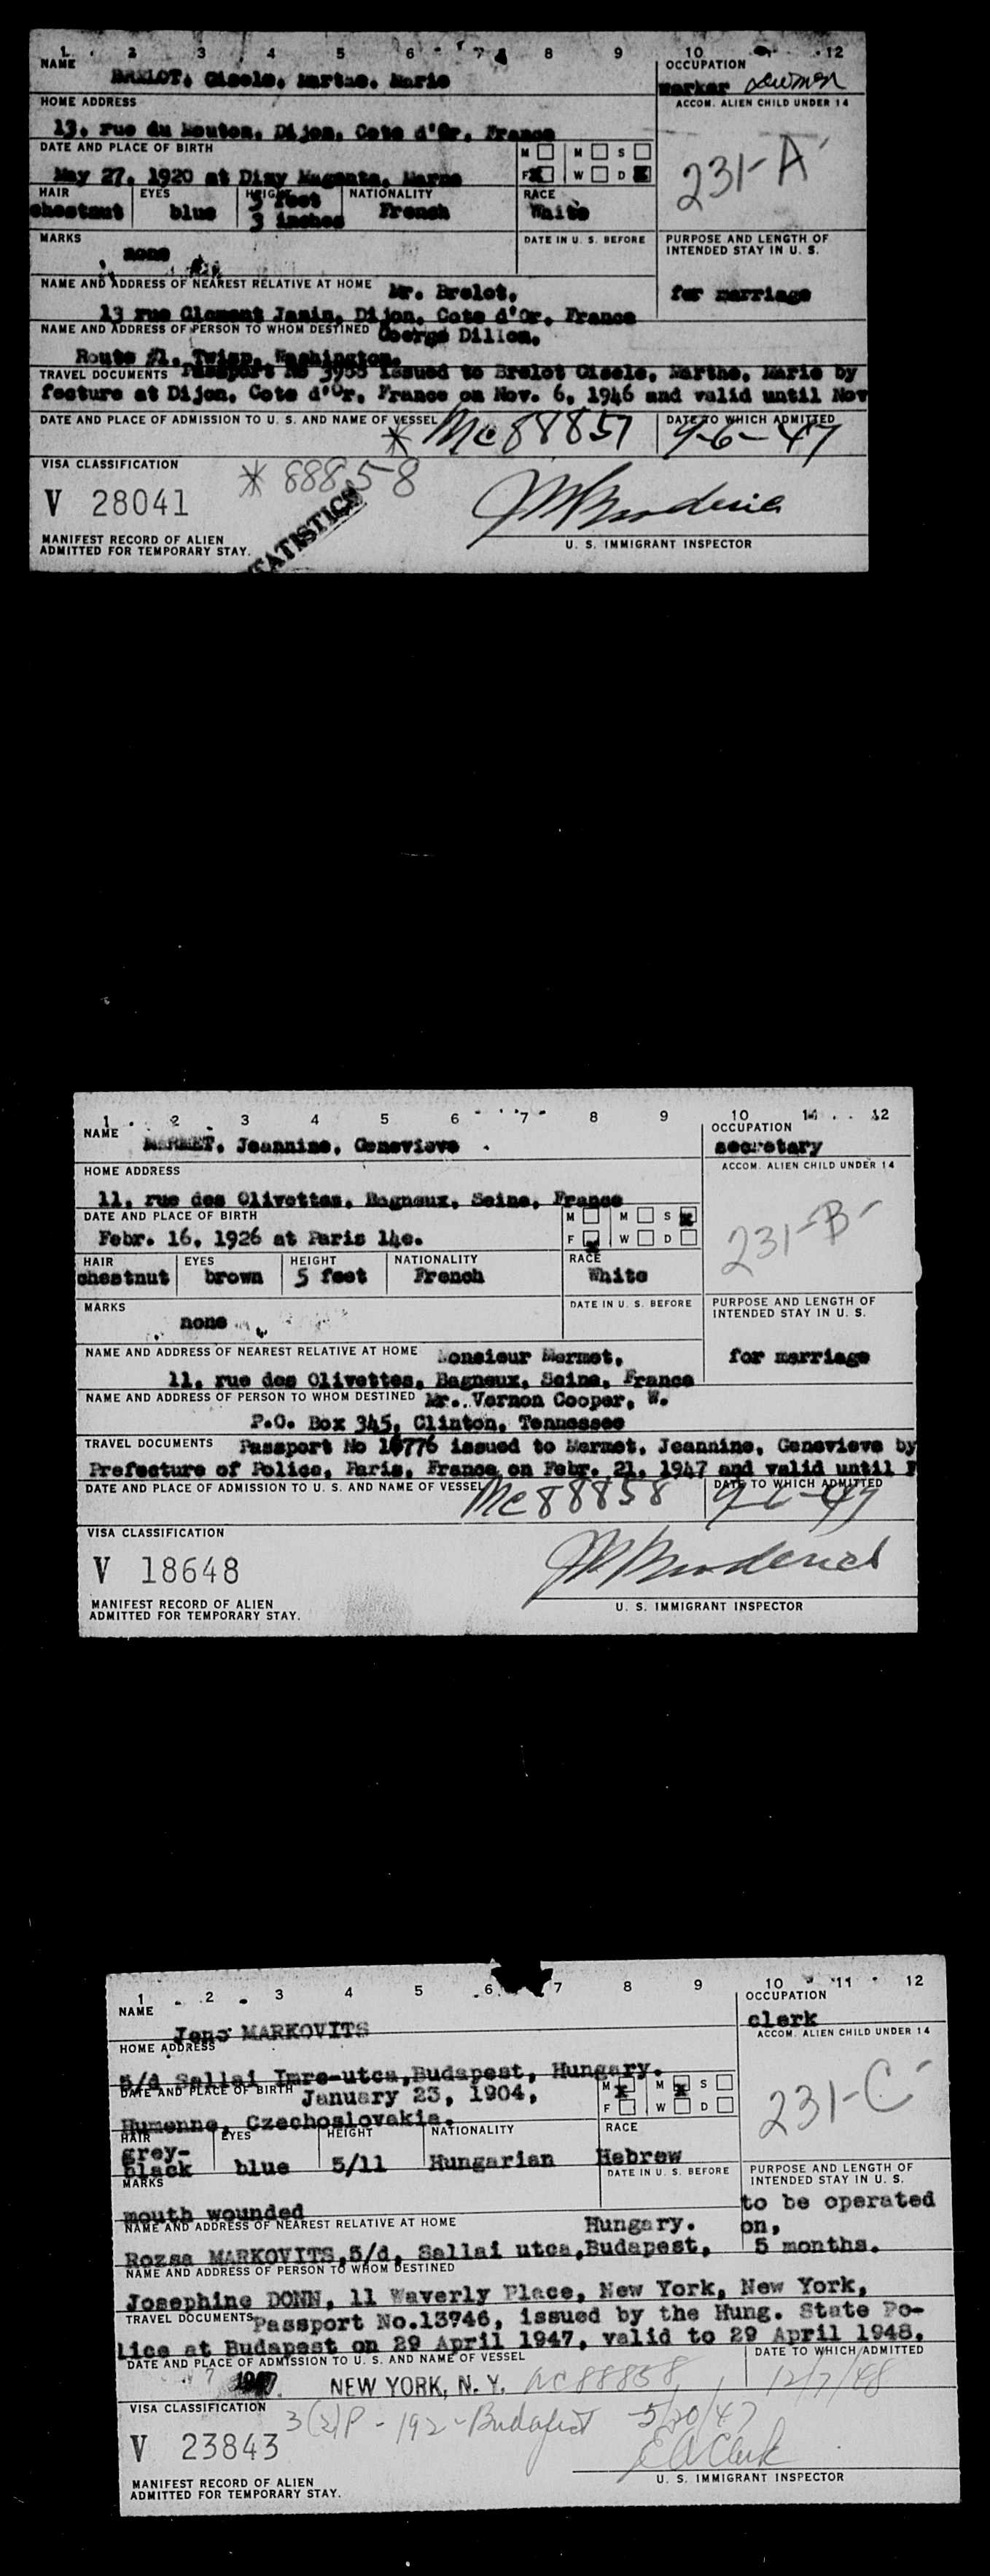 1 2 3 4 5 6 7 8 9 10 12
NAME
BRELOT, Gisele, Marthe, Marie
OCCUPATION
marker
HOME ADDRESS
13, rue du Mouton, Dijon, Cote d'Or, France
ACCOM. ALIEN CHILD UNDER 14
231-A
DATE AND PLACE OF BIRTH
May 27, 1920 at Dizy Magenta, Marne
M M S
F W D
HAIR EYES HEIGHT NATIONALITY RACE
chestnut blue 5 feet 3 inches French White
MARKS
none
DATE IN U. S. BEFORE
PURPOSE AND LENGTH OF INTENDED STAY IN U. S.
for marriage
NAME AND ADDRESS OF NEAREST RELATIVE AT HOME Mr. Brelot,
13 rue Clement Janin, Dijon, Cote d'Or, France
NAME AND ADDRESS OF PERSON TO WHOM DESTINED George Dillon,
Route #1, Twisp, Washington.
TRAVEL DOCUMENTS Passport No 3955 issued to Brelot Gisele, Marthe, Marie by
fecture at Dijon, Cote d'Or, France on Nov. 6, 1946 and valid until Nov
DATE AND PLACE OF ADMISSION TO U. S. AND NAME OF VESSEL
* Mc 88857
DATE TO WHICH ADMITTED
9-6-47
VISA CLASSIFICATION
* 88858
V 28041
STATISTICS
MANIFEST RECORD OF ALIEN
ADMITTED FOR TEMPORARY STAY.
U. S. IMMIGRANT INSPECTOR
1 2 3 4 5 6 7 8 9 10 11 12
NAME
MERMET, Jeannine, Genevieve
OCCUPATION
secretary
HOME ADDRESS
11, rue des Olivettes, Bagneux, Seine, France
ACCOM. ALIEN CHILD UNDER 14
231-B-
DATE AND PLACE OF BIRTH
Febr. 16, 1926 at Paris 14e.
M M S
F W D
HAIR EYES HEIGHT NATIONALITY RACE
chestnut brown 5 feet French White
MARKS
none
DATE IN U. S. BEFORE
PURPOSE AND LENGTH OF INTENDED STAY IN U. S.
for marriage
NAME AND ADDRESS OF NEAREST RELATIVE AT HOME Monsieur Mermet,
11, rue des Olivettes, Bagneux, Seine, France
NAME AND ADDRESS OF PERSON TO WHOM DESTINED Mr. Vernon Cooper, W.
P.O. Box 345, Clinton, Tennessee
TRAVEL DOCUMENTS Passport No 16776 issued to Mermet, Jeannine, Genevieve by
Prefecture of Police, Paris, France on Febr. 21, 1947 and valid until F
DATE AND PLACE OF ADMISSION TO U. S. AND NAME OF VESSEL
Mc 88858
DATE TO WHICH ADMITTED
9-6-47
VISA CLASSIFICATION
V 18648
MANIFEST RECORD OF ALIEN
ADMITTED FOR TEMPORARY STAY.
U. S. IMMIGRANT INSPECTOR
1 2 3 4 5 6 7 8 9 10 11 12
NAME
Jeno MARKOVITS
OCCUPATION
clerk
HOME ADDRESS
5/d Sallai Imre-utca, Budapest, Hungary.
ACCOM. ALIEN CHILD UNDER 14
231-C-
DATE AND PLACE OF BIRTH January 23, 1904,
Humenne, Czechoslovakia.
M M S
F W D
HAIR EYES HEIGHT NATIONALITY RACE
grey-black blue 5/11 Hungarian Hebrew
MARKS
mouth wounded
DATE IN U. S. BEFORE
PURPOSE AND LENGTH OF INTENDED STAY IN U. S.
to be operated on,
5 months.
NAME AND ADDRESS OF NEAREST RELATIVE AT HOME Hungary.
Rozsa MARKOVITS, 5/d, Sallai utca, Budapest,
NAME AND ADDRESS OF PERSON TO WHOM DESTINED
Josephine DONN, 11 Waverly Place, New York, New York,
TRAVEL DOCUMENTS Passport No.13746, issued by the Hung. State Po-
lice at Budapest on 29 April 1947, valid to 29 April 1948.
DATE AND PLACE OF ADMISSION TO U. S. AND NAME OF VESSEL
DATE TO WHICH ADMITTED
7 1947 NEW YORK, N. Y. MC 88858 12/7/48
VISA CLASSIFICATION
3(2)P - 192 - Budapest 5/20/47
V 23843
E A Clark
MANIFEST RECORD OF ALIEN
ADMITTED FOR TEMPORARY STAY.
U. S. IMMIGRANT INSPECTOR